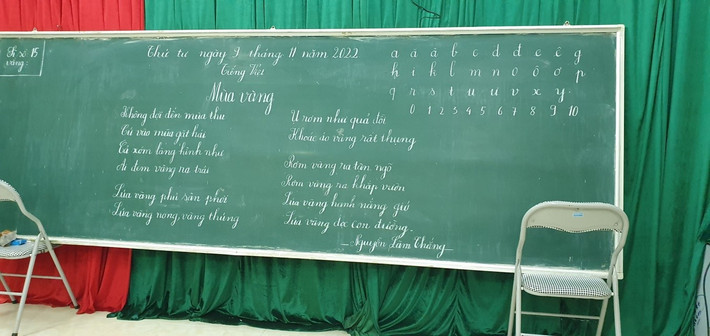 Sĩ số: 15
vắng:
Thứ tư ngày 9 tháng 11 năm 2022
Tiếng Việt
Mùa vàng
Không đợi đến mùa thu
Cứ vào mùa gặt hái
Cả xóm làng hình như
Ai đem vàng ra trải
Lúa vàng phủ sân phơi
Lúa vàng nong, vàng thúng
Ụ rơm như quả đồi
Khoác áo vàng rất thụng
Rơm vàng ra tận ngõ
Rơm vàng ra khắp vườn
Lúa vàng hanh nắng gió
Lúa vàng dọc con đường.
- Nguyễn Lãm Thắng -
a ă â b c d đ e ê g
h i k l m n o ô ơ p
q r s t u ư v x y
0 1 2 3 4 5 6 7 8 9 10